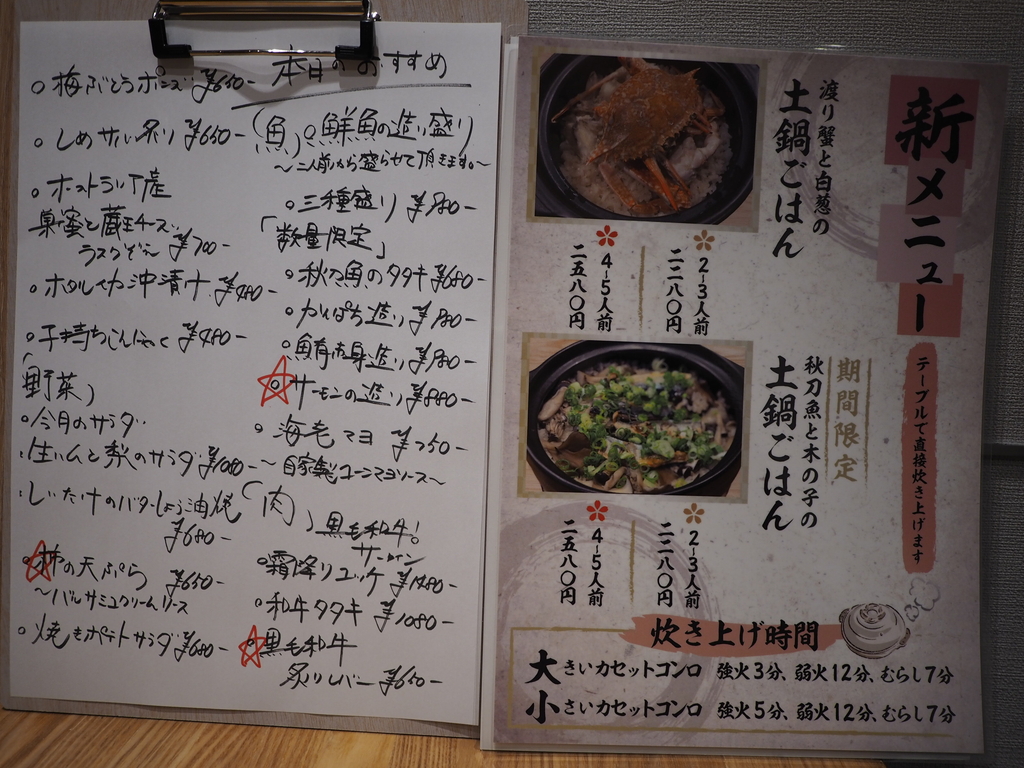 本日のおすすめ
(魚)
○鮮魚の造り盛り
〜二人前から盛らせて頂きます。〜
○三種盛り ¥980-
「数量限定」
○秋刀魚のタタキ ¥680-
○かんぱち造り ¥780-
○鮪赤身造り ¥780-
○サーモンの造り ¥880-
○海老マヨ ¥750-
〜自家製ユーニマヨソース〜
(肉) 黒毛和牛!
サーロイン
○霜降りユッケ ¥1280-
○和牛タタキ ¥1080-
○黒毛和牛
炙りレバー ¥650-
○梅ぶどうポンズ ¥650-
○しめサバ炙り ¥650-
○オーストラリア産
巣蜜と蔵王チーズ
ラスクぞえ〜 ¥700-
○ホタルイカ沖漬け ¥480-
○子持ちこんにゃく ¥480-
(野菜)
○今月のサラダ
○生ハムと梨のサラダ ¥1080-
○しいたけのバターしょう油焼
¥680-
○柿の天ぷら ¥650-
〜バルサミコクリームソース
○焼きポテトサラダ ¥680-
新メニュー
テーブルで直接炊き上げます
渡り蟹と白葱の
土鍋ごはん
2-3人前
二二八〇円
4-5人前
二五八〇円
期間限定
秋刀魚と木の子の
土鍋ごはん
2-3人前
二二八〇円
4-5人前
二五八〇円
炊き上げ時間
大きいカセットコンロ 強火3分、弱火12分、むらし7分
小さいカセットコンロ 強火5分、弱火12分、むらし7分